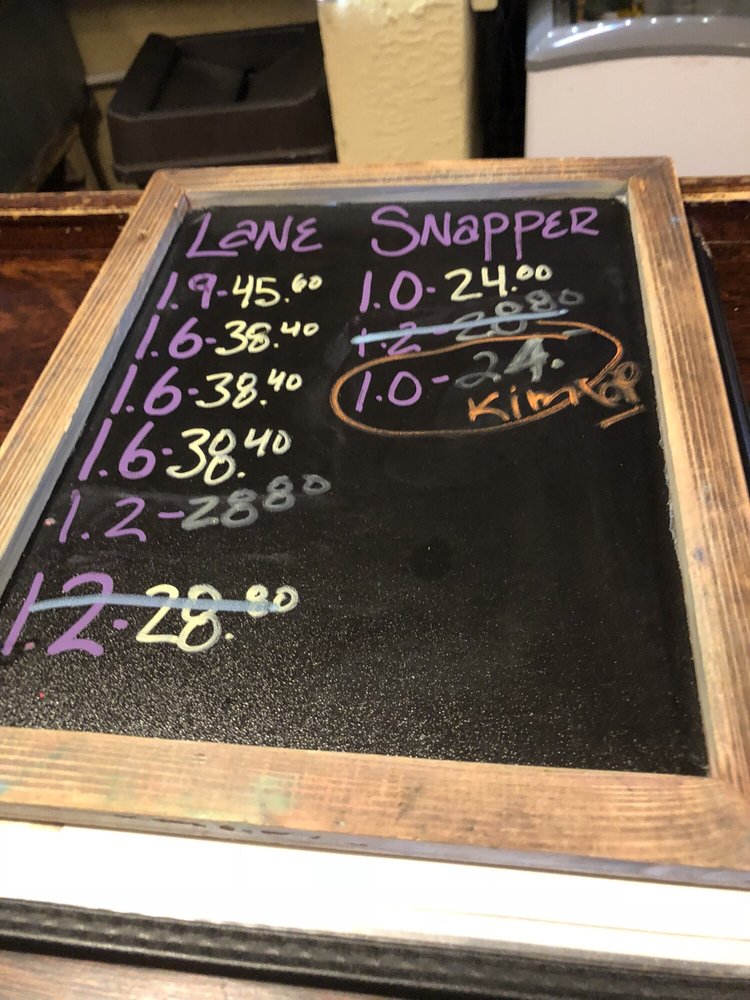 LANE SNAPPER
1.9-45.60
1.6-38.40
1.6-38.40
1.6-38.40
1.2-28 80
1.2-28.80
1.0-24.00
1.2-28 80
1.0-24.
Kim